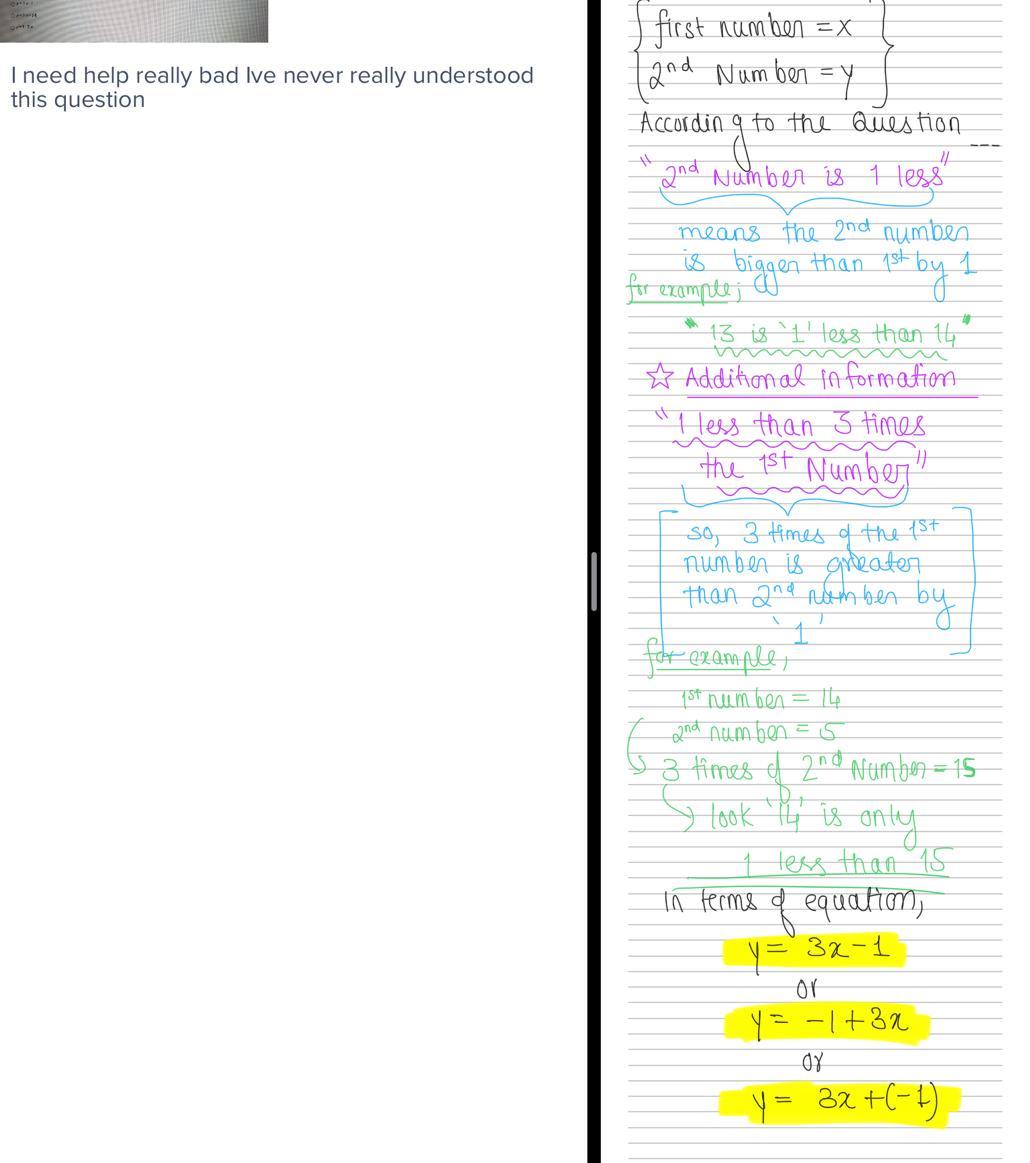 I need help really bad Ive never really understood
this question
first number = x
2nd Number = y
According to the Question ---
"2nd Number is 1 less"
means the 2nd number
is bigger than 1st by 1
for example;
"13 is '1' less than 14"
☆ Additional information
"1 less than 3 times
the 1st Number"
so, 3 times of the 1st
number is greater
than 2nd number by
'1'
for example,
1st number = 14
2nd number = 5
3 times of 2nd Number = 15
look '14' is only
1 less than 15
In terms of equation,
y = 3x-1
or
y = -1+3x
or
y = 3x+(-1)